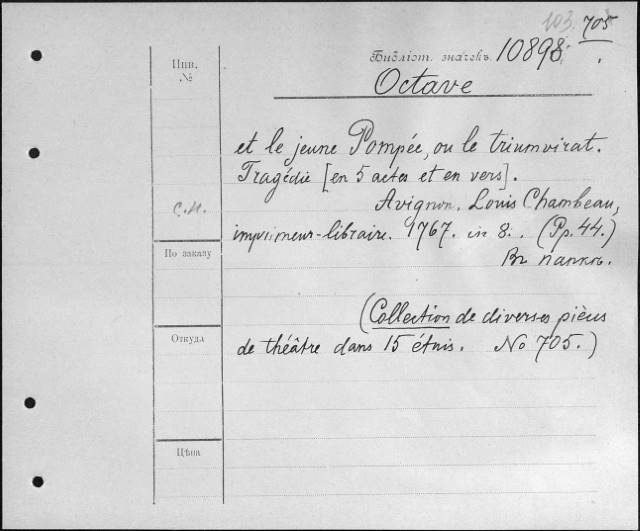 103. 705
Инв. №
Библіот. значекъ. 10898.
Octave
et le jeune Pompée, ou le triumvirat.
Tragédie [en 5 actes et en vers].
С.И.
Avignon. Louis Chambeau,
imprimeur-libraire. 1767. in 8. (Pp. 44.)
По заказу
Въ папкѣ.
(Collection de diverses pièces
Откуда
de théâtre dans 15 étuis. No 705.)
Цѣна